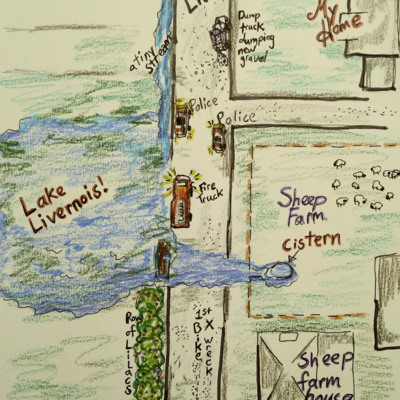 Li
My
Home
Dump
truck
dumping
new
gravel
a tiny stream
Police
Police
Fire
truck
Lake
Livernois!
Sheep
Farm
cistern
Row of Lilacs
1st
Bike
X wreck
Sheep
farm
house